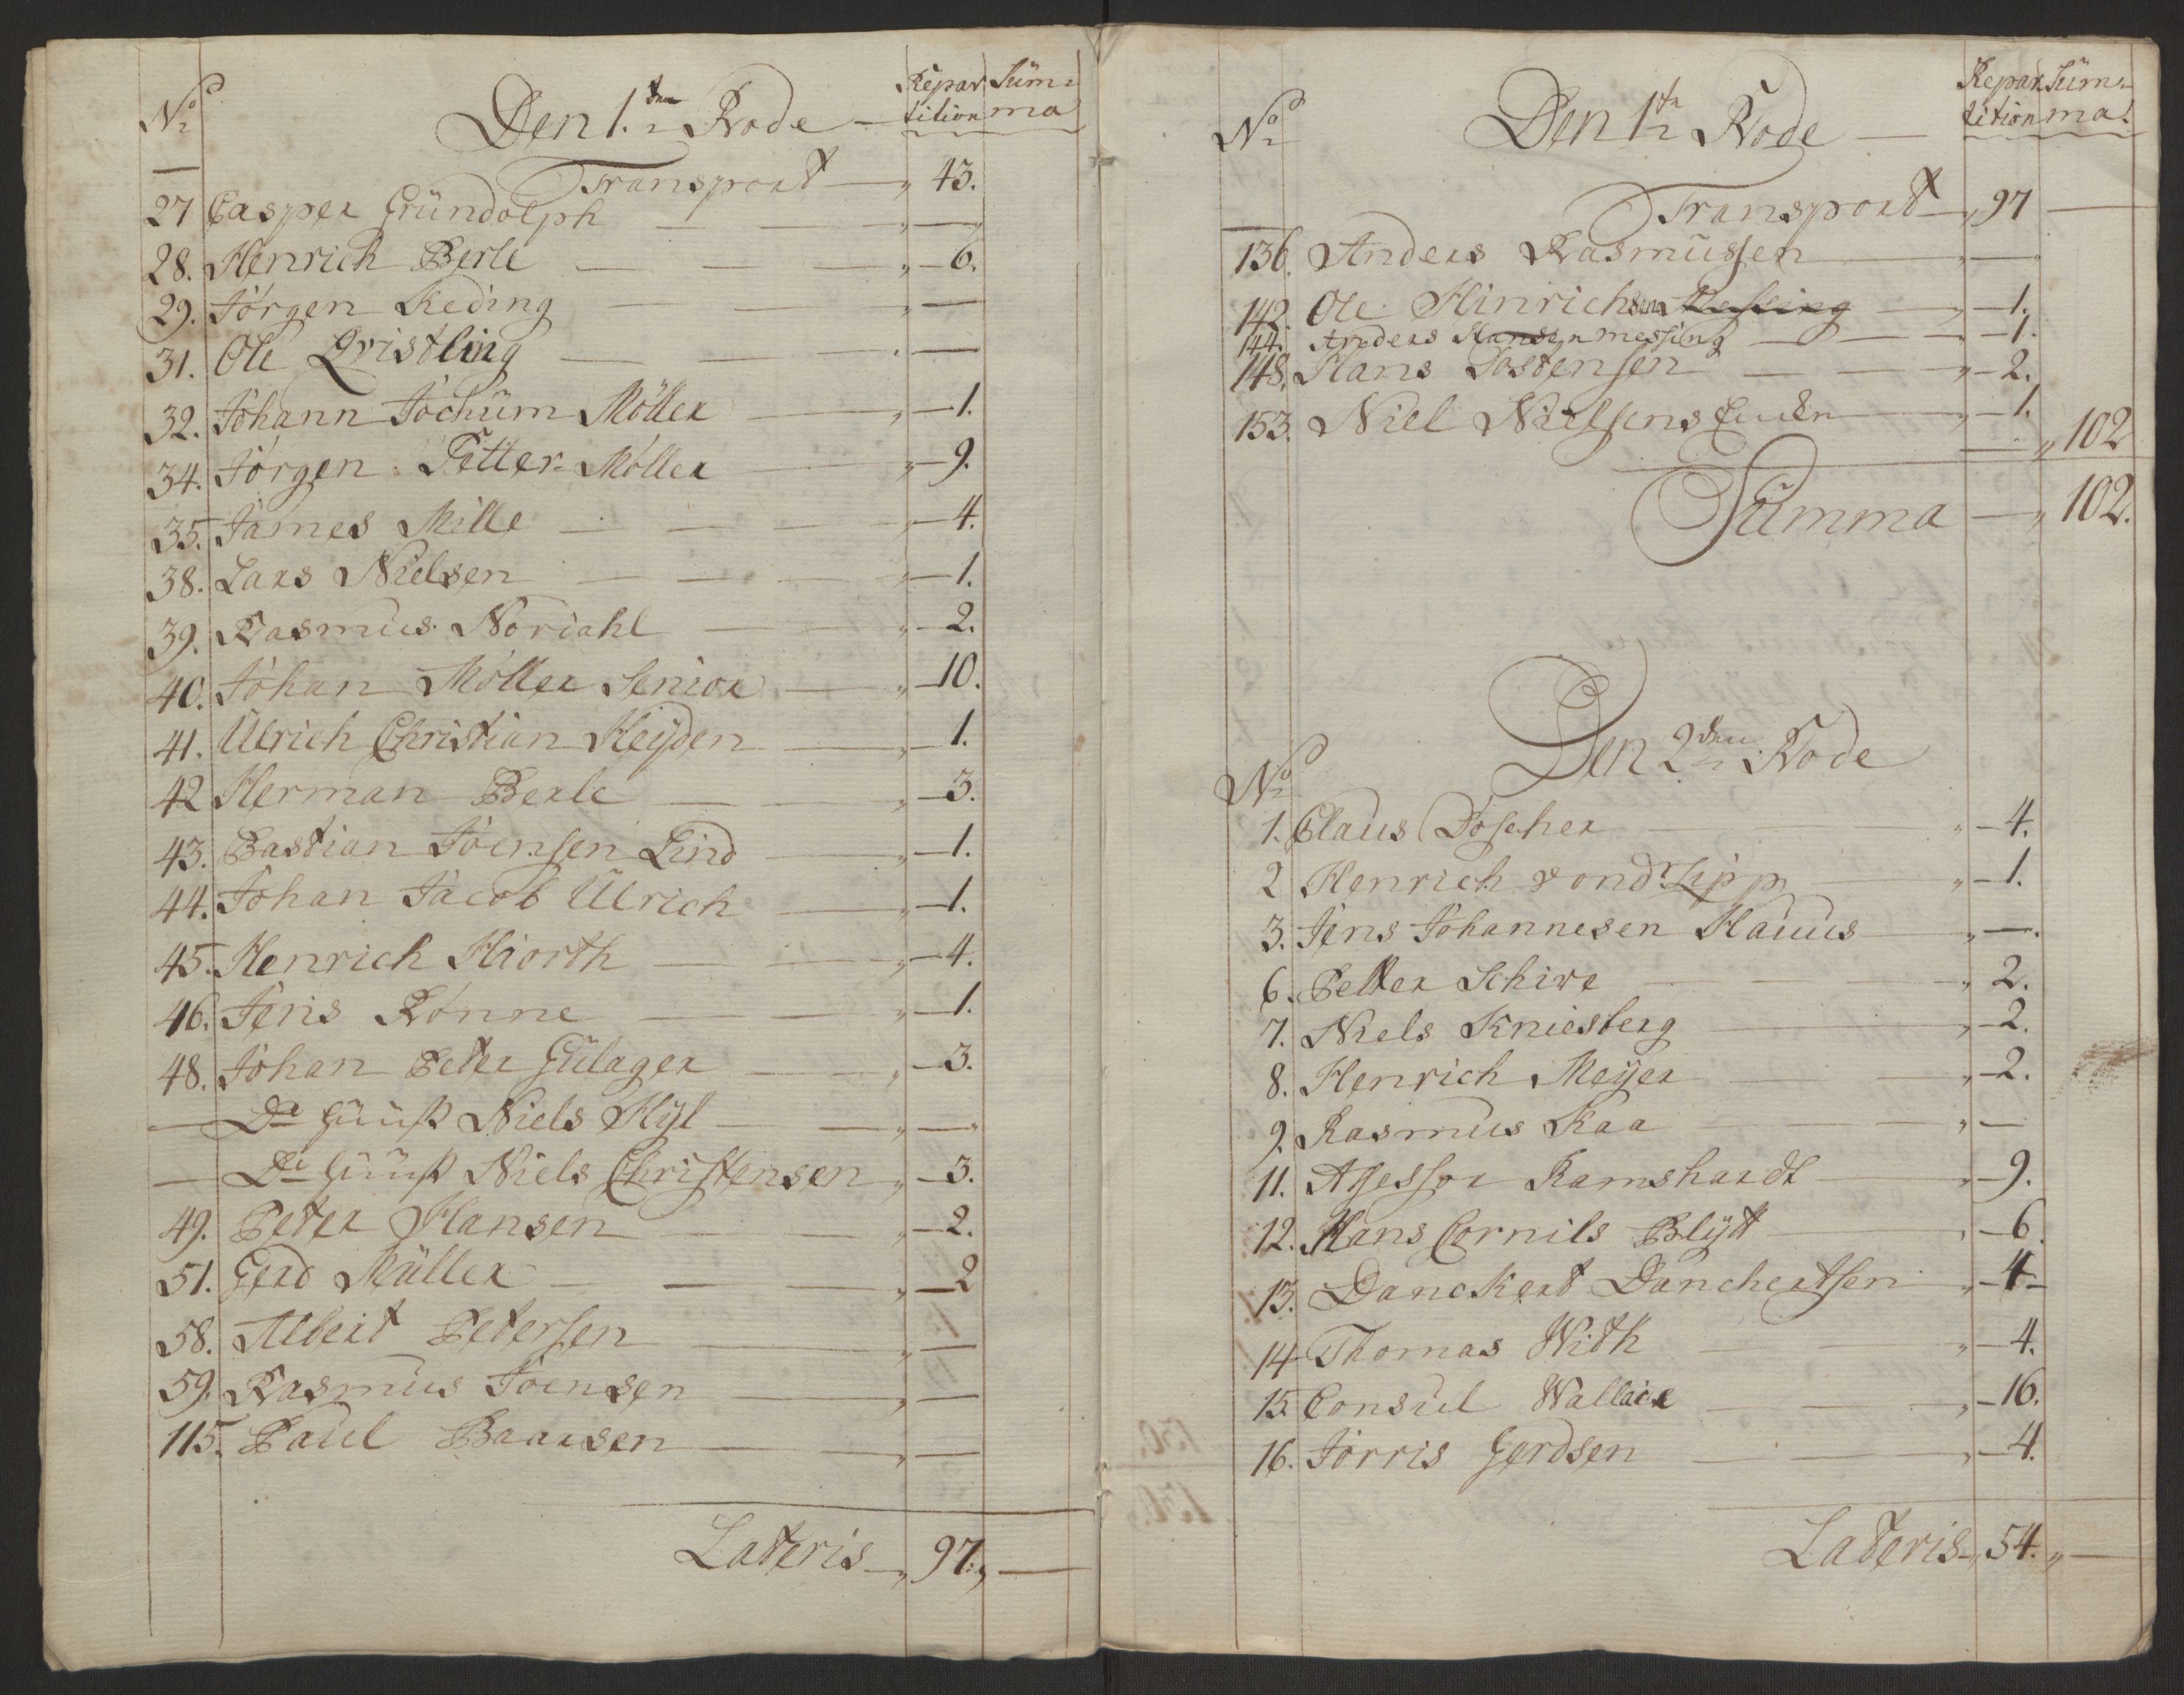 No Den 1.den Rode Repar Sum=
tition ma
Transport 43.
27 Casper Gründolph —
28. Henrich Berle 6.
29. Jörgen Reding —
31. Ole Qvistling —
32. Johann Jochum Möller 1.
34. Jörgen Petter Möller 9.
35. James Mille 4.
38. Lars Nielsen 1.
39. Rasmus Nordahl 2.
40. Johan Möller Senior 10.
41. Ulrich Christian Heyden 1.
42 Herman Berle 3.
43. Bastian Joensen Lind 1.
44. Johan Jacob Ulrich 1.
45. Henrich Hiorth 4.
46. Jens Rönne 1.
48. Johan Peter Gülager 3.
— Do Huuß Niels Hyl —
— Do Huuß Niels Christensen 3.
49. Peter Hansen 2.
51. Gerd Müller 2
58. Albert Petersen —
59. Rasmus Joensen —
115. Paul Baarsen —
Lateris 97. —
No Den 1te Rode Repar Sum=
tition ma.
Transport 97 —
136. Anders Rasmussen —
142. Ole Hinrichsen Messing 1.
144. Anders Hansen messing 1.
148. Hans Tostensen 2.
153. Niel Nielsens Encke 1.
102
Summa 102.
No Den 2den Rode
1. Claus Döscher 4.
2 Henrich vondr Lipp 1.
3. Jens Johannesen Hauus —
6. Petter Schive 2.
7. Niels Kniesberg 2.
8. Henrich Meyer 2.
9. Rasmus Kaa —
11. Assessor Ramshardt 9.
12. Hans Cornils Blytt 6.
13. Danckert Danchertsen 4
14 Thomas With 4.
15. Consul Wallace 16.
16. Jörris Gerdsen 4.
Lateris 54. —